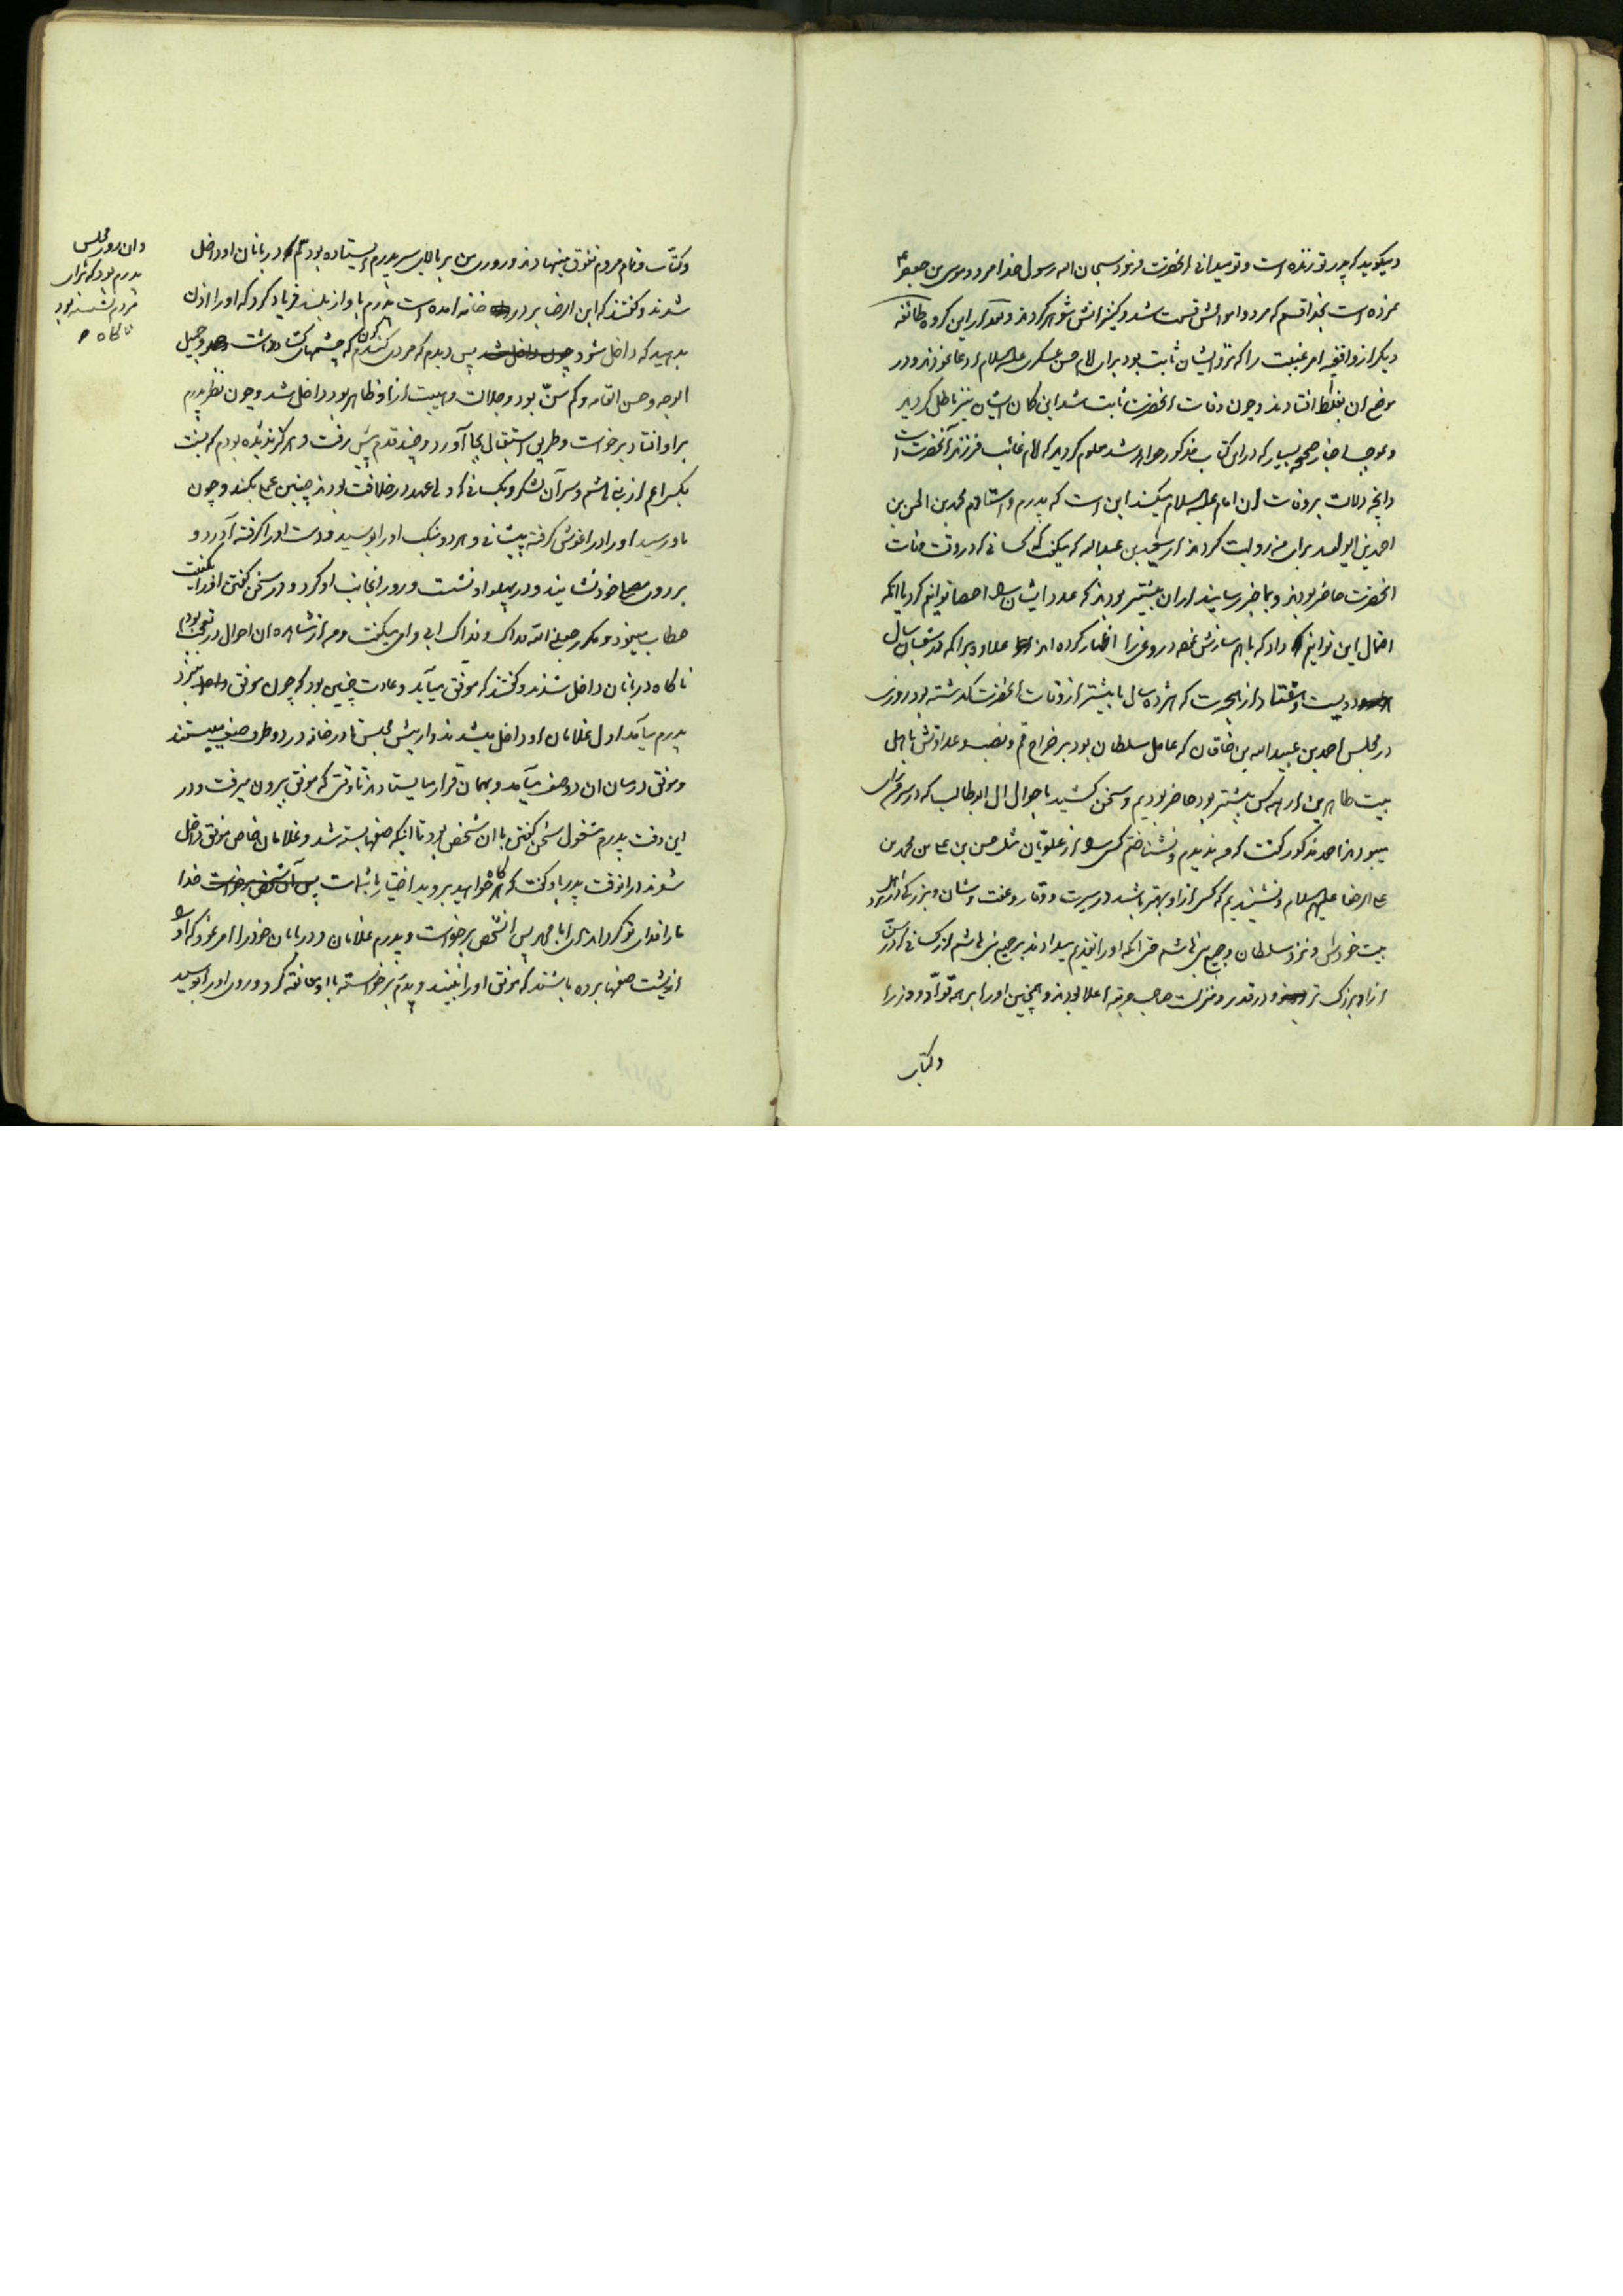 و میگوید که پدر تو زنده است و تو میدانی انحضرت فرمود سبحان الله رسول خدا مرد و موسی بن جعفر ع
نمرده است بخدا قسم که مرد و اموالش قسمت شد و کنیزانش شوهر کردند و بعد از این کروه طائفه
دیکر از واقفیه امر غیبت را که نزد ایشان ثابت بود برای امام حسن عسکری علیه السلام ادعا نمودند و در
موضع ان بغلط افتادند و چون وفات انحضرت ثابت شد این کمان ایشان نیز باطل کردید
و بموجب اخبار صحیح بسیار که در این کتاب مذکور خواهد شد معلوم کردید که امام غائب فرزند آنحضرت است
و انچه دلالت بر وفات ان امام علیه السلام میکند این است که پدرم و استادم محمد بن الحسن بن
احمد بن الولید برای من روایت کردند از سعد بن عبدالله که میکفت که کسانی که در وقت وفات
انحضرت حاضر بودند و بما خبر رسانیدند از ان بیشتر بودند که عدد ایشان را احصا توانیم کرد یا انکه
احتمال این توانیم داد که باهم سازش نموده دروغی را اظهار کرده اند علاوه بر انکه در شعبان سال
دویست و هفتاد و از هجرت که هژده سال یا بیشتر از وفات انحضرت کذشته بود روزی
در مجلس احمد بن عبیدالله بن خاقان که عامل سلطان بود بر خراج قم و نصب و عداوتش با اهل
بیت طاهرین از همه کس بیشتر بود حاضر بودیم و سخن کشید باحوال ال ابوطالب که در سر من رای
میبودند احمد مذکور کفت که من ندیدم و نشناختم کسی را از علویان مثل حسن بن علی بن محمد بن
علی الرضا علیهم السلام و نشنیدیم که کسی از او بهتر باشد در سیرت و وقار و عفت و شان و بزرکی نزد اهل
بیت خودش و نزد سلطان و جمیع بنی هاشم حتی انکه او را تقدیم میدادند بر جمیع بنی هاشم از کسانی که در سن
از او بزرک تر و در قدر و منزلت صاحب مرتبه اعلا بودند و همچنین او را بر همه قواد و وزرا
و کتاب
و کتاب و تمام مردم تفوق مینهادند و روزی من بر بالای سر پدرم ایستاده بودم که دربانان او داخل
وان روز مجلس
پدرم بود که برای
مردم نشسته بود
ناکاه
شدند و کفتند که ابن الرضا بر در خانه امده است پدرم باواز بلند فریاد کرد که او را اذن
بدهید که داخل شود چون داخل شد پس دیدم که مردی کندم کون که چشمهای کشاده داشت و جمیل
الوجه و حسن القامه و کم سن بود و جلالت و هیبت از او ظاهر بود داخل شد و چون نظر پدرم
بر او افتاد برخواست و طریق استقبال بجا آورد و چند قدم پیش رفت و هرکز ندیده بودم که نسبت
بکسی اعم از بنی هاشم و سران لشکر و بکسانی که ولی عهد در خلافت بودند چنین عملی بکند و چون
باو رسید او را در اغوش کرفته پیشانی و هر دو منکب او را بوسید و دست او را کرفته آورد و
بر روی مصلای خود نشانید و در پهلو او نشست و رو را بجانب او کرد و در سخن کفتن او را بکنیت
خطاب مینمود و مکرر جعلنی الله فداک و فداک ابی و امی میکفت و من از مشاهده ان احوال در تعجب بودم
ناکاه دربانان داخل شدند و کفتند که موفق میآید و عادت چنین بود که چون موفق بنزد
پدرم میآمد اول غلامان او داخل میشدند و از پیش مجلس تا در خانه در دو طرف صف میبستند
و موفق در میان ان دو صف میآمد و بهمان قرار میایستادند تا وقتی که موفق بیرون میرفت و در
این وقت پدرم مشغول سخن کفتن با ان شخص بود تا اینکه صفها بسته شد و غلامان خاص موفق داخل
شوند در انوقت پدر باو کفت که هرکاه خواهید بروید اختیار با شماست پس آن شخص برخواست خدا
ما را فدای تو کرداند ای ابا محمد پس انشخص برخواست و پدرم غلامان و دربانان خود را امر نمود که او را
از پشت صفها برده باشند که موفق او را نبیند و پدرم برخواسته با او معانقه کرد و روی او را بوسید